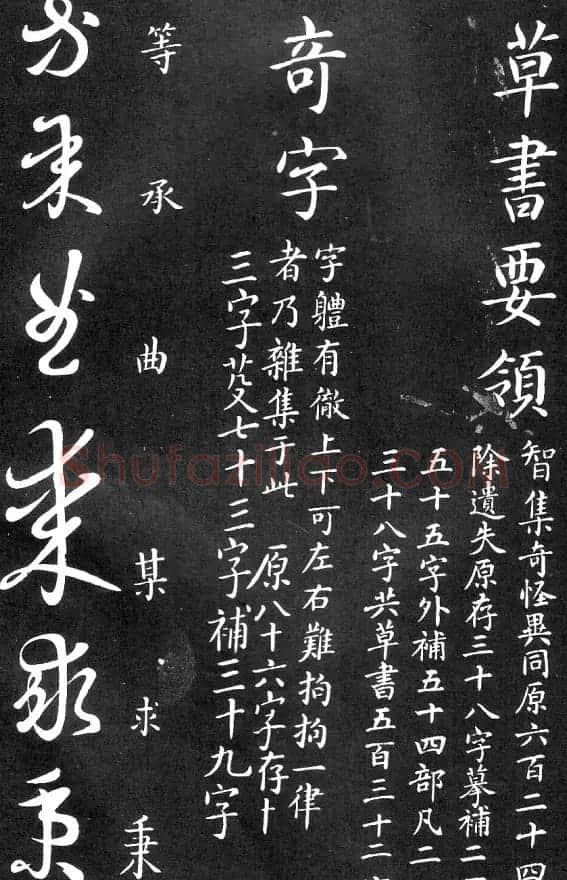 草書要領
智集奇怪異同原六百二十四
除遺失原存三十八字摹補二
五十五字外補五十四部凡二
三十八字共草書五百三十二
奇字
字體有徹上下可左右難拘拘一律
者乃雜集于此 原八十六字存十
三字芟七十三字補三十九字
等承曲某求秉
等承曲某求秉
Shufaziliao.com